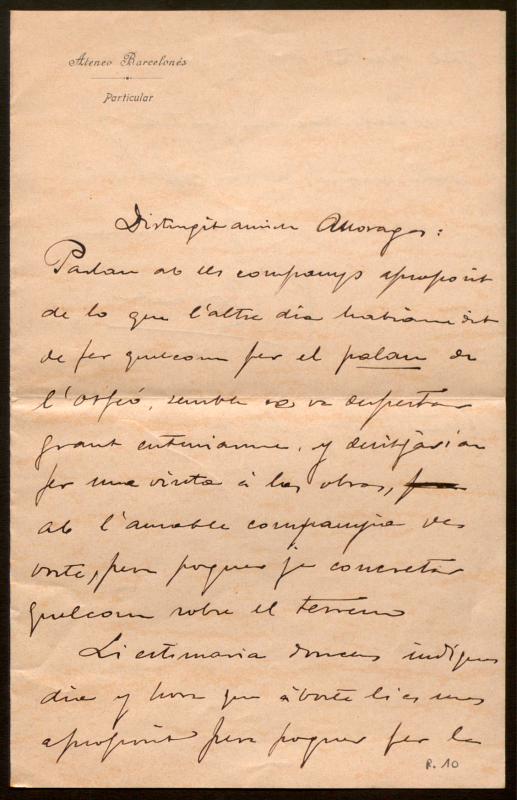 Ateneo Barcelonés
Particular
Distingit amich Moragas:
Parlan ab els companys apropósit
de lo que l'altre dia habiam dit
de fer quelcom per el palau de
l'Orfeó, sembla va despertar
grant entusiasme, y desitjarian
fer una visita á las obras,
ab l'amable companyia de
vosté, pera poguer ja concretar
quelcom sobre el terreno
Li estimaria doncas indiques
dia y hora que á vosté li es mes
apropósit pera poguer fer la
R. 10